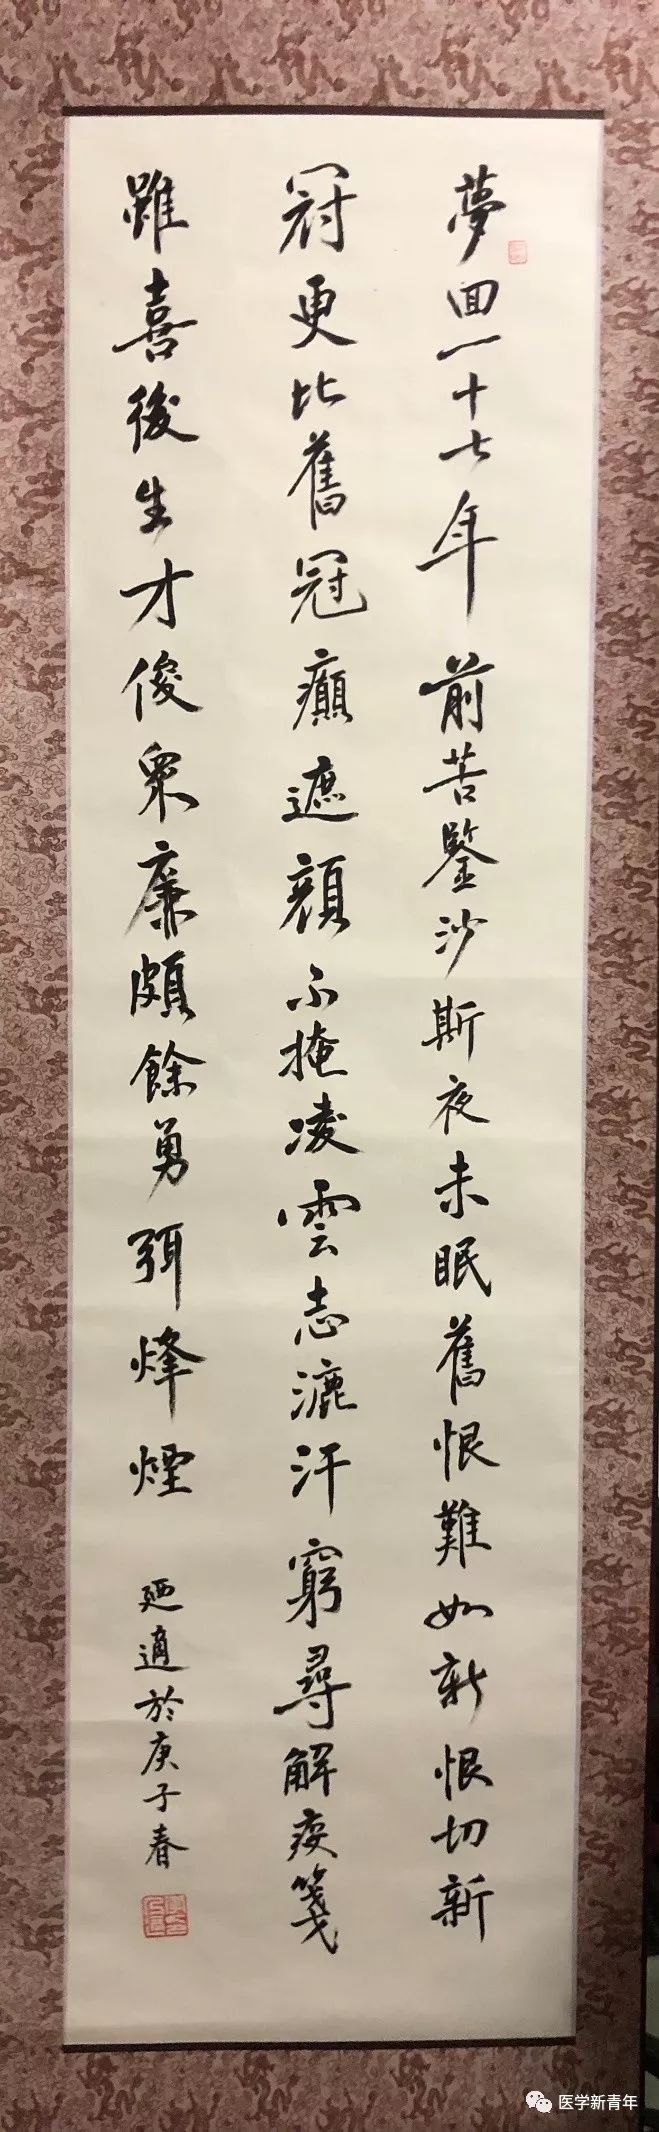 夢回一十七年前苦鑒沙斯夜未眠舊恨難如新恨切新
冠更比舊冠癲遮顏不掩凌雲志漉汗窮尋解疫箋
雖喜後生才俊眾廉頗餘勇弭烽煙
廼適於庚子春
医学新青年